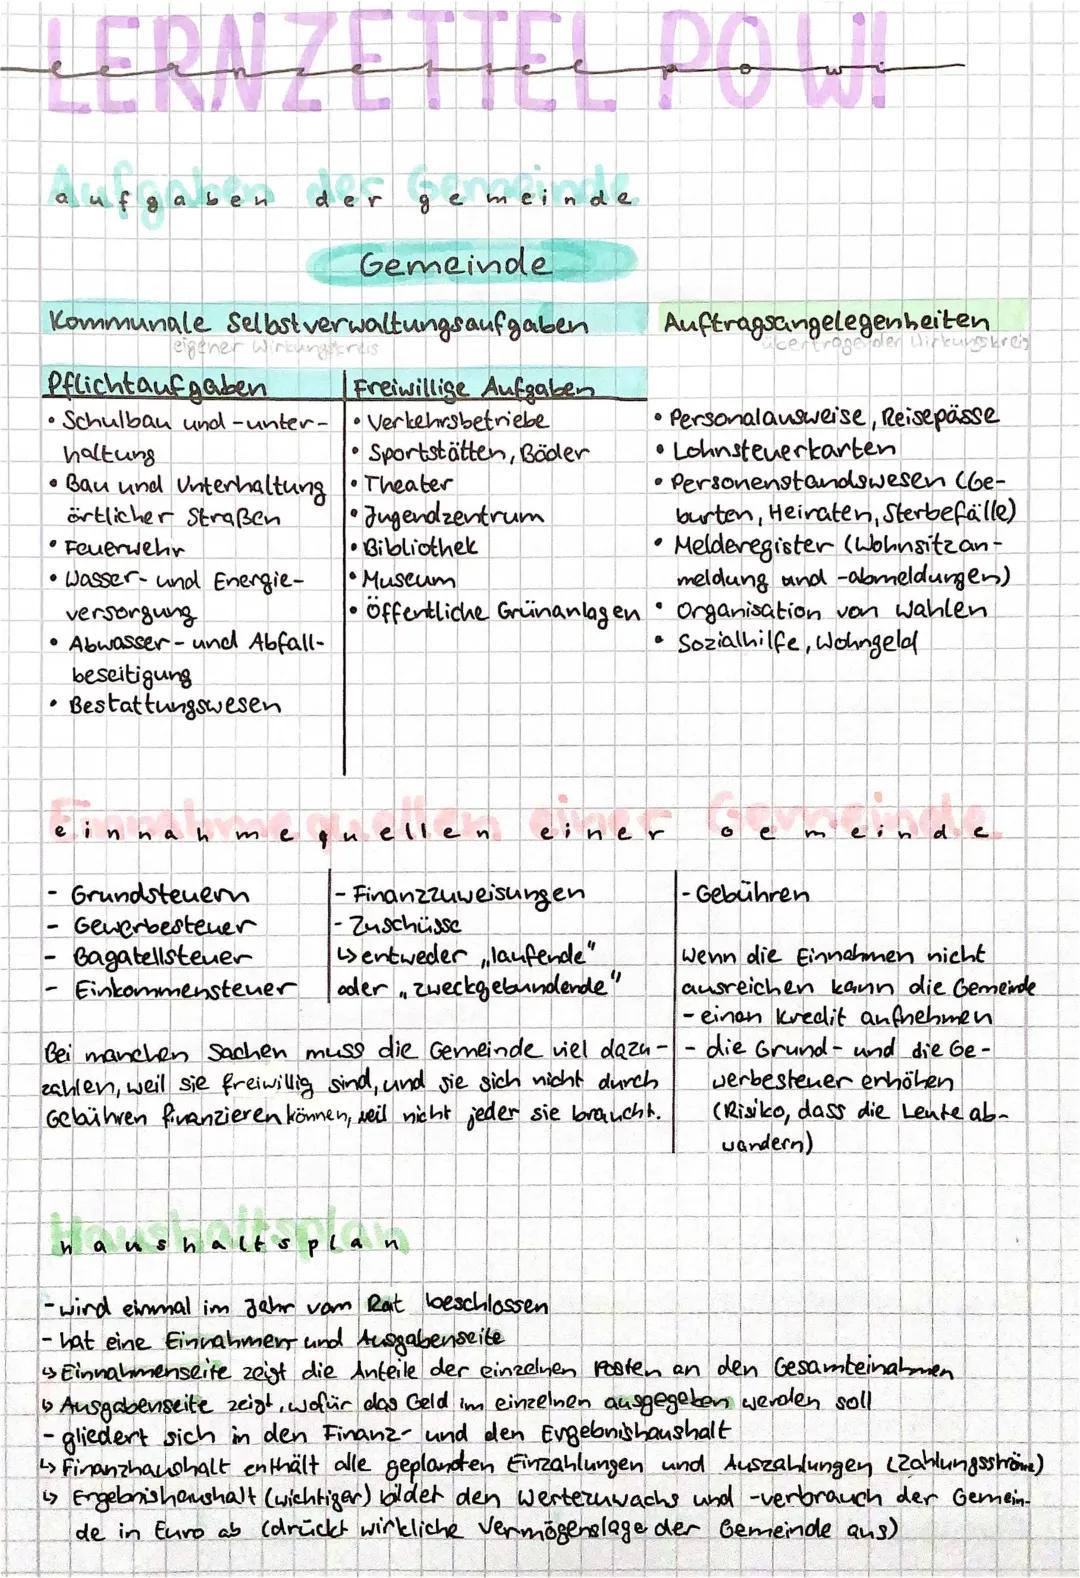 LERNZETTEL POWI
lernzettel powi
Aufgaben der Gemeinde
aufgaben der gemeinde
Gemeinde
Kommunale Selbstverwaltungsaufgaben
eigener Wirkungskreis
Pflichtaufgaben
• Schulbau und -unter-
haltung
• Bau und Unterhaltung
örtlicher Straßen
• Feuerwehr
• Wasser- und Energie-
versorgung
• Abwasser- und Abfall-
beseitigung
• Bestattungswesen
Freiwillige Aufgaben
• Verkehrsbetriebe
• Sportstätten, Bäder
• Theater
• Jugendzentrum
• Bibliothek
• Museum
• Öffentliche Grünanlagen
Auftragsangelegenheiten
übertragender Wirkungskreis
• Personalausweise, Reisepässe
• Lohnsteuerkarten
• Personenstandswesen (Ge-
burten, Heiraten, Sterbefälle)
• Melderegister (Wohnsitzan-
meldung und -abmeldungen)
• Organisation von Wahlen
• Sozialhilfe, Wohngeld
Einnahmequellen einer Gemeinde
einnahmequellen einer gemeinde
- Grundsteuern
- Gewerbesteuer
- Bagatellsteuer
- Einkommensteuer
- Finanzzuweisungen
- Zuschüsse
↳ entweder „laufende"
oder „zweckgebundende"
Bei manchen Sachen muss die Gemeinde viel dazu-
zahlen, weil sie freiwillig sind, und sie sich nicht durch
Gebühren finanzieren können, weil nicht jeder sie braucht.
- Gebühren
Wenn die Einnahmen nicht
ausreichen kann die Gemeinde
- einen Kredit aufnehmen
- die Grund- und die Ge-
werbesteuer erhöhen
(Risiko, dass die Leute ab-
wandern)
Haushaltsplan
haushaltsplan
- wird einmal im Jahr vom Rat beschlossen
- hat eine Einnahmen- und Ausgabenseite
↳ Einnahmenseite zeigt die Anteile der einzelnen Posten an den Gesamteinahmen
↳ Ausgabenseite zeigt, wofür das Geld im einzelnen ausgegeben werden soll
- gliedert sich in den Finanz- und den Ergebnishaushalt
↳ Finanzhaushalt enthält alle geplanten Einzahlungen und Auszahlungen (Zahlungsströme)
↳ Ergebnishaushalt (wichtiger) bildet den Wertezuwachs und -verbrauch der Gemein-
de in Euro ab (drückt wirkliche Vermögenslage der Gemeinde aus)